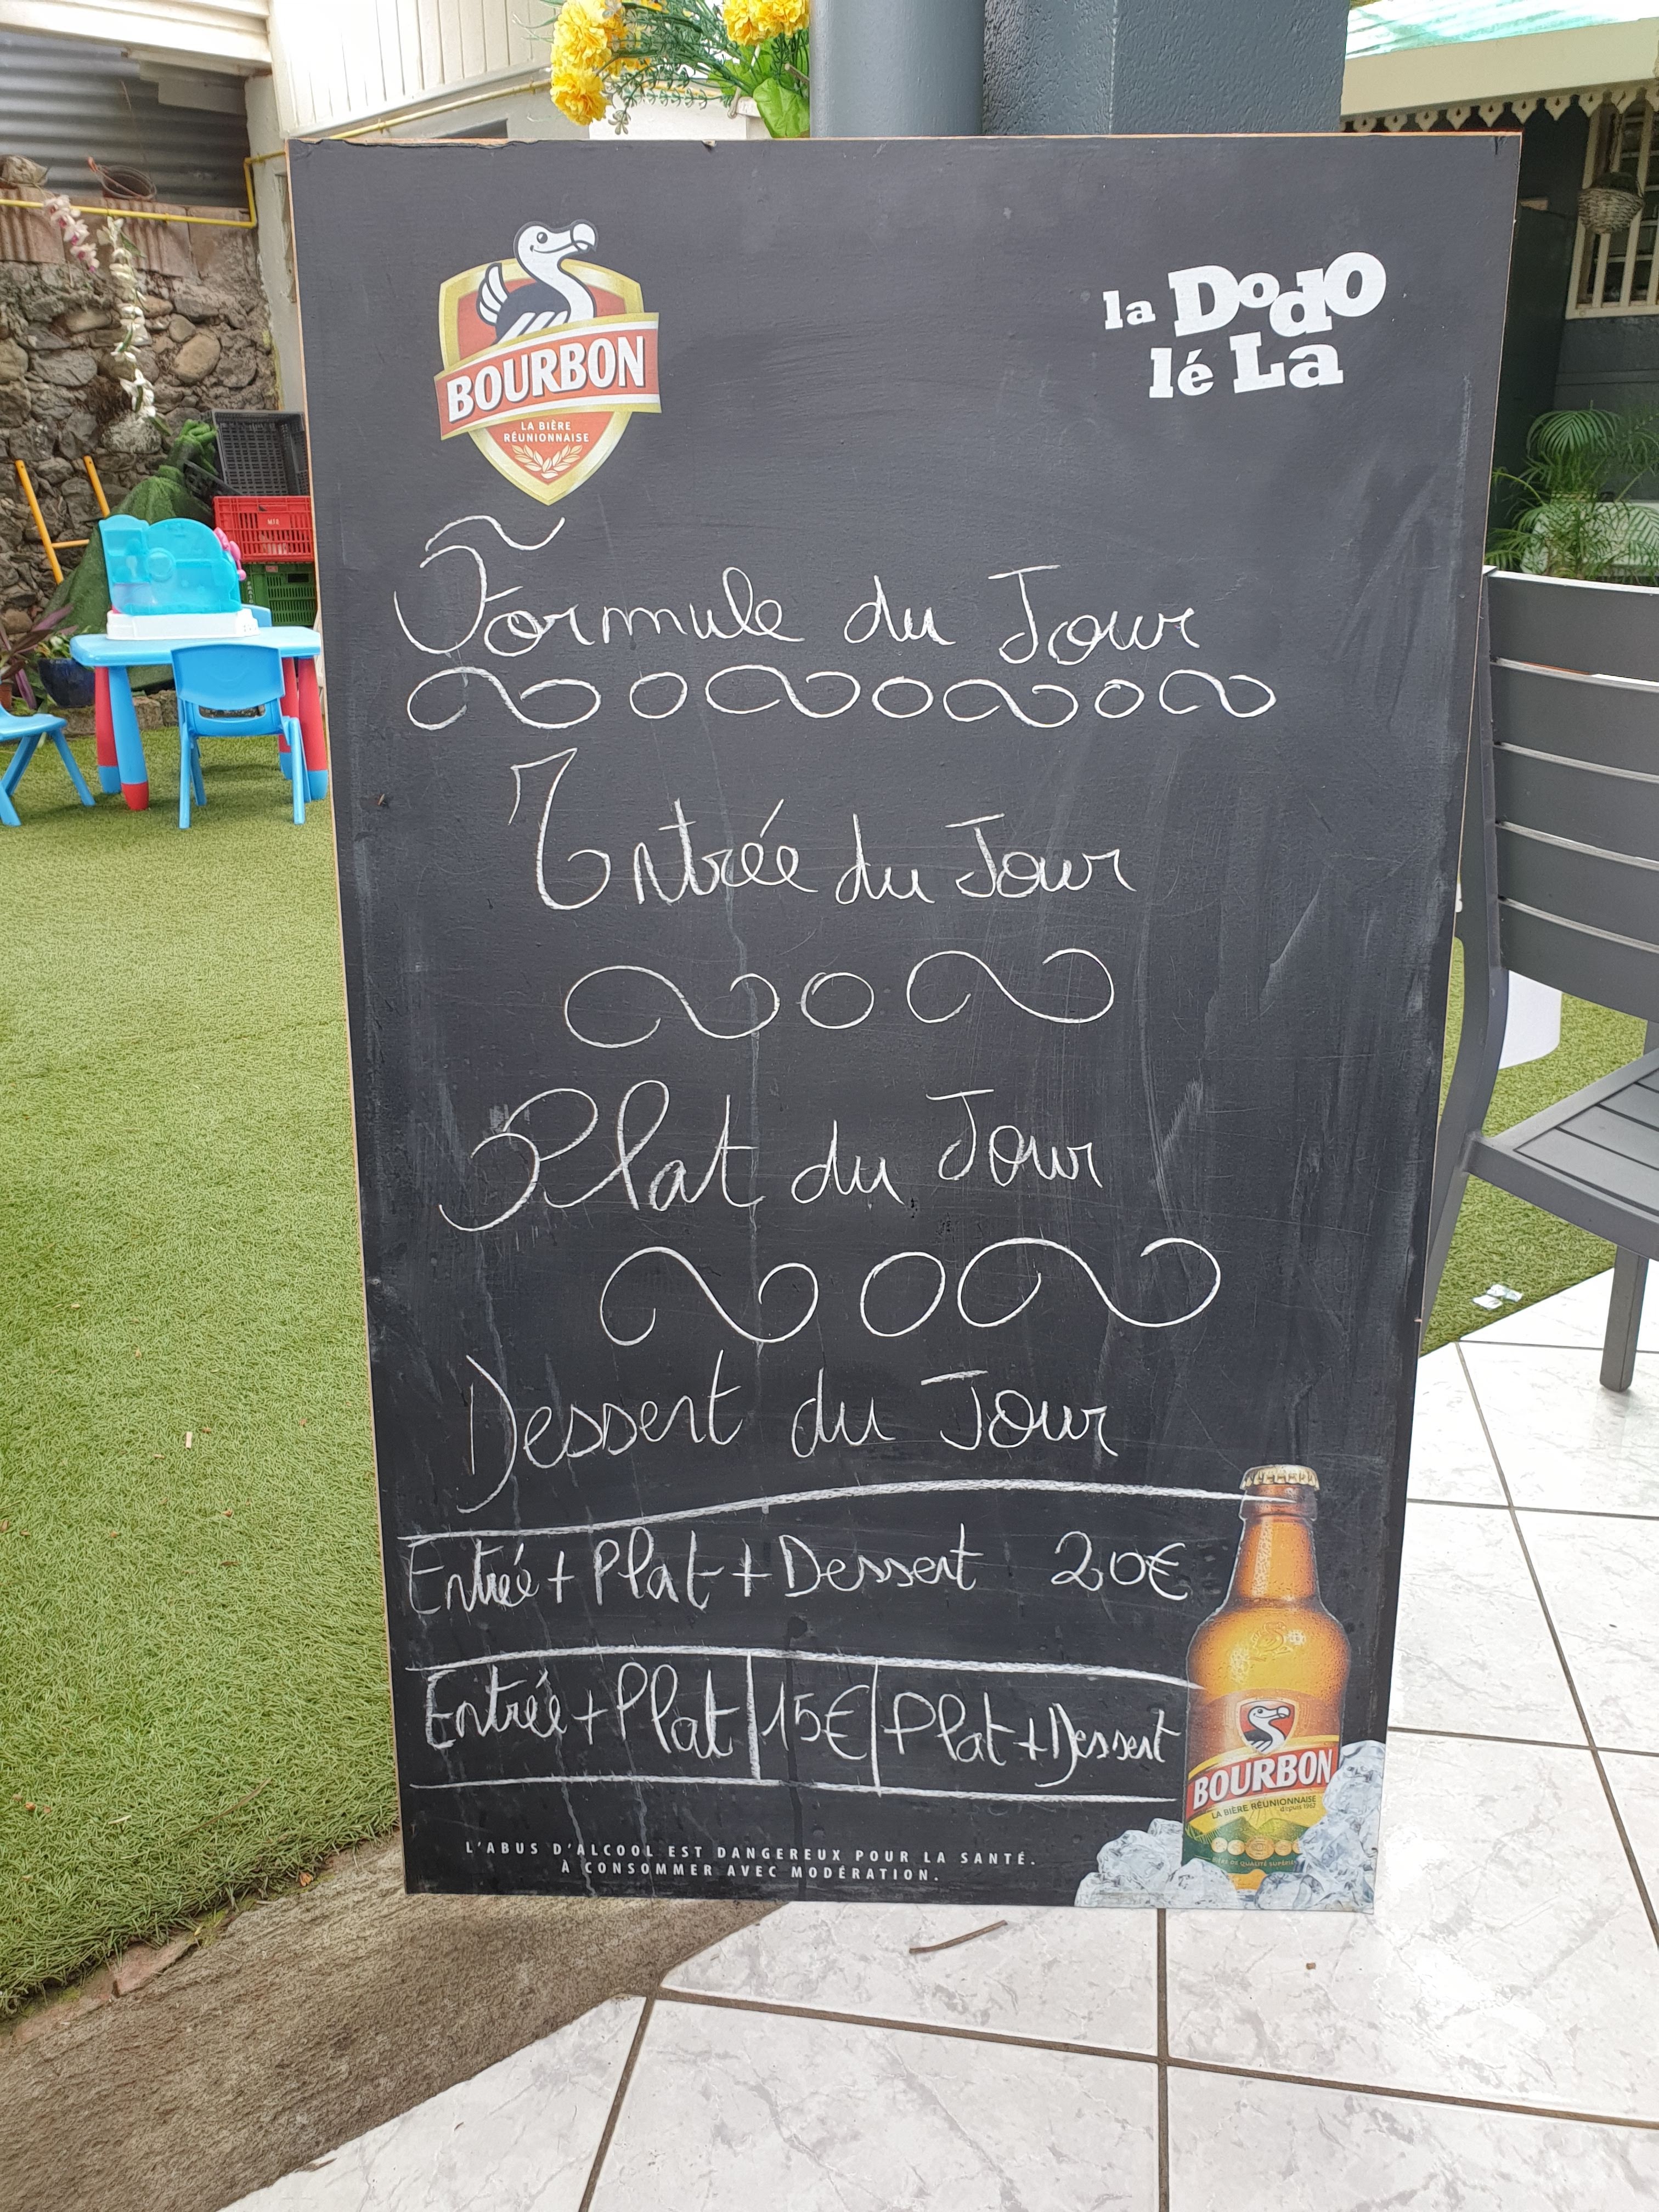 BOURBON
LA BIÈRE
RÉUNIONNAISE
la Dodo
lé La
Formule du Jour
Entrée du Jour
Plat du Jour
Dessert du Jour
Entrée + Plat + Dessert 20€
Entrée + Plat | 15€ | Plat + Dessert
BOURBON
LA BIÈRE RÉUNIONNAISE
depuis 1962
L'ABUS D'ALCOOL EST DANGEREUX POUR LA SANTÉ.
À CONSOMMER AVEC MODÉRATION.